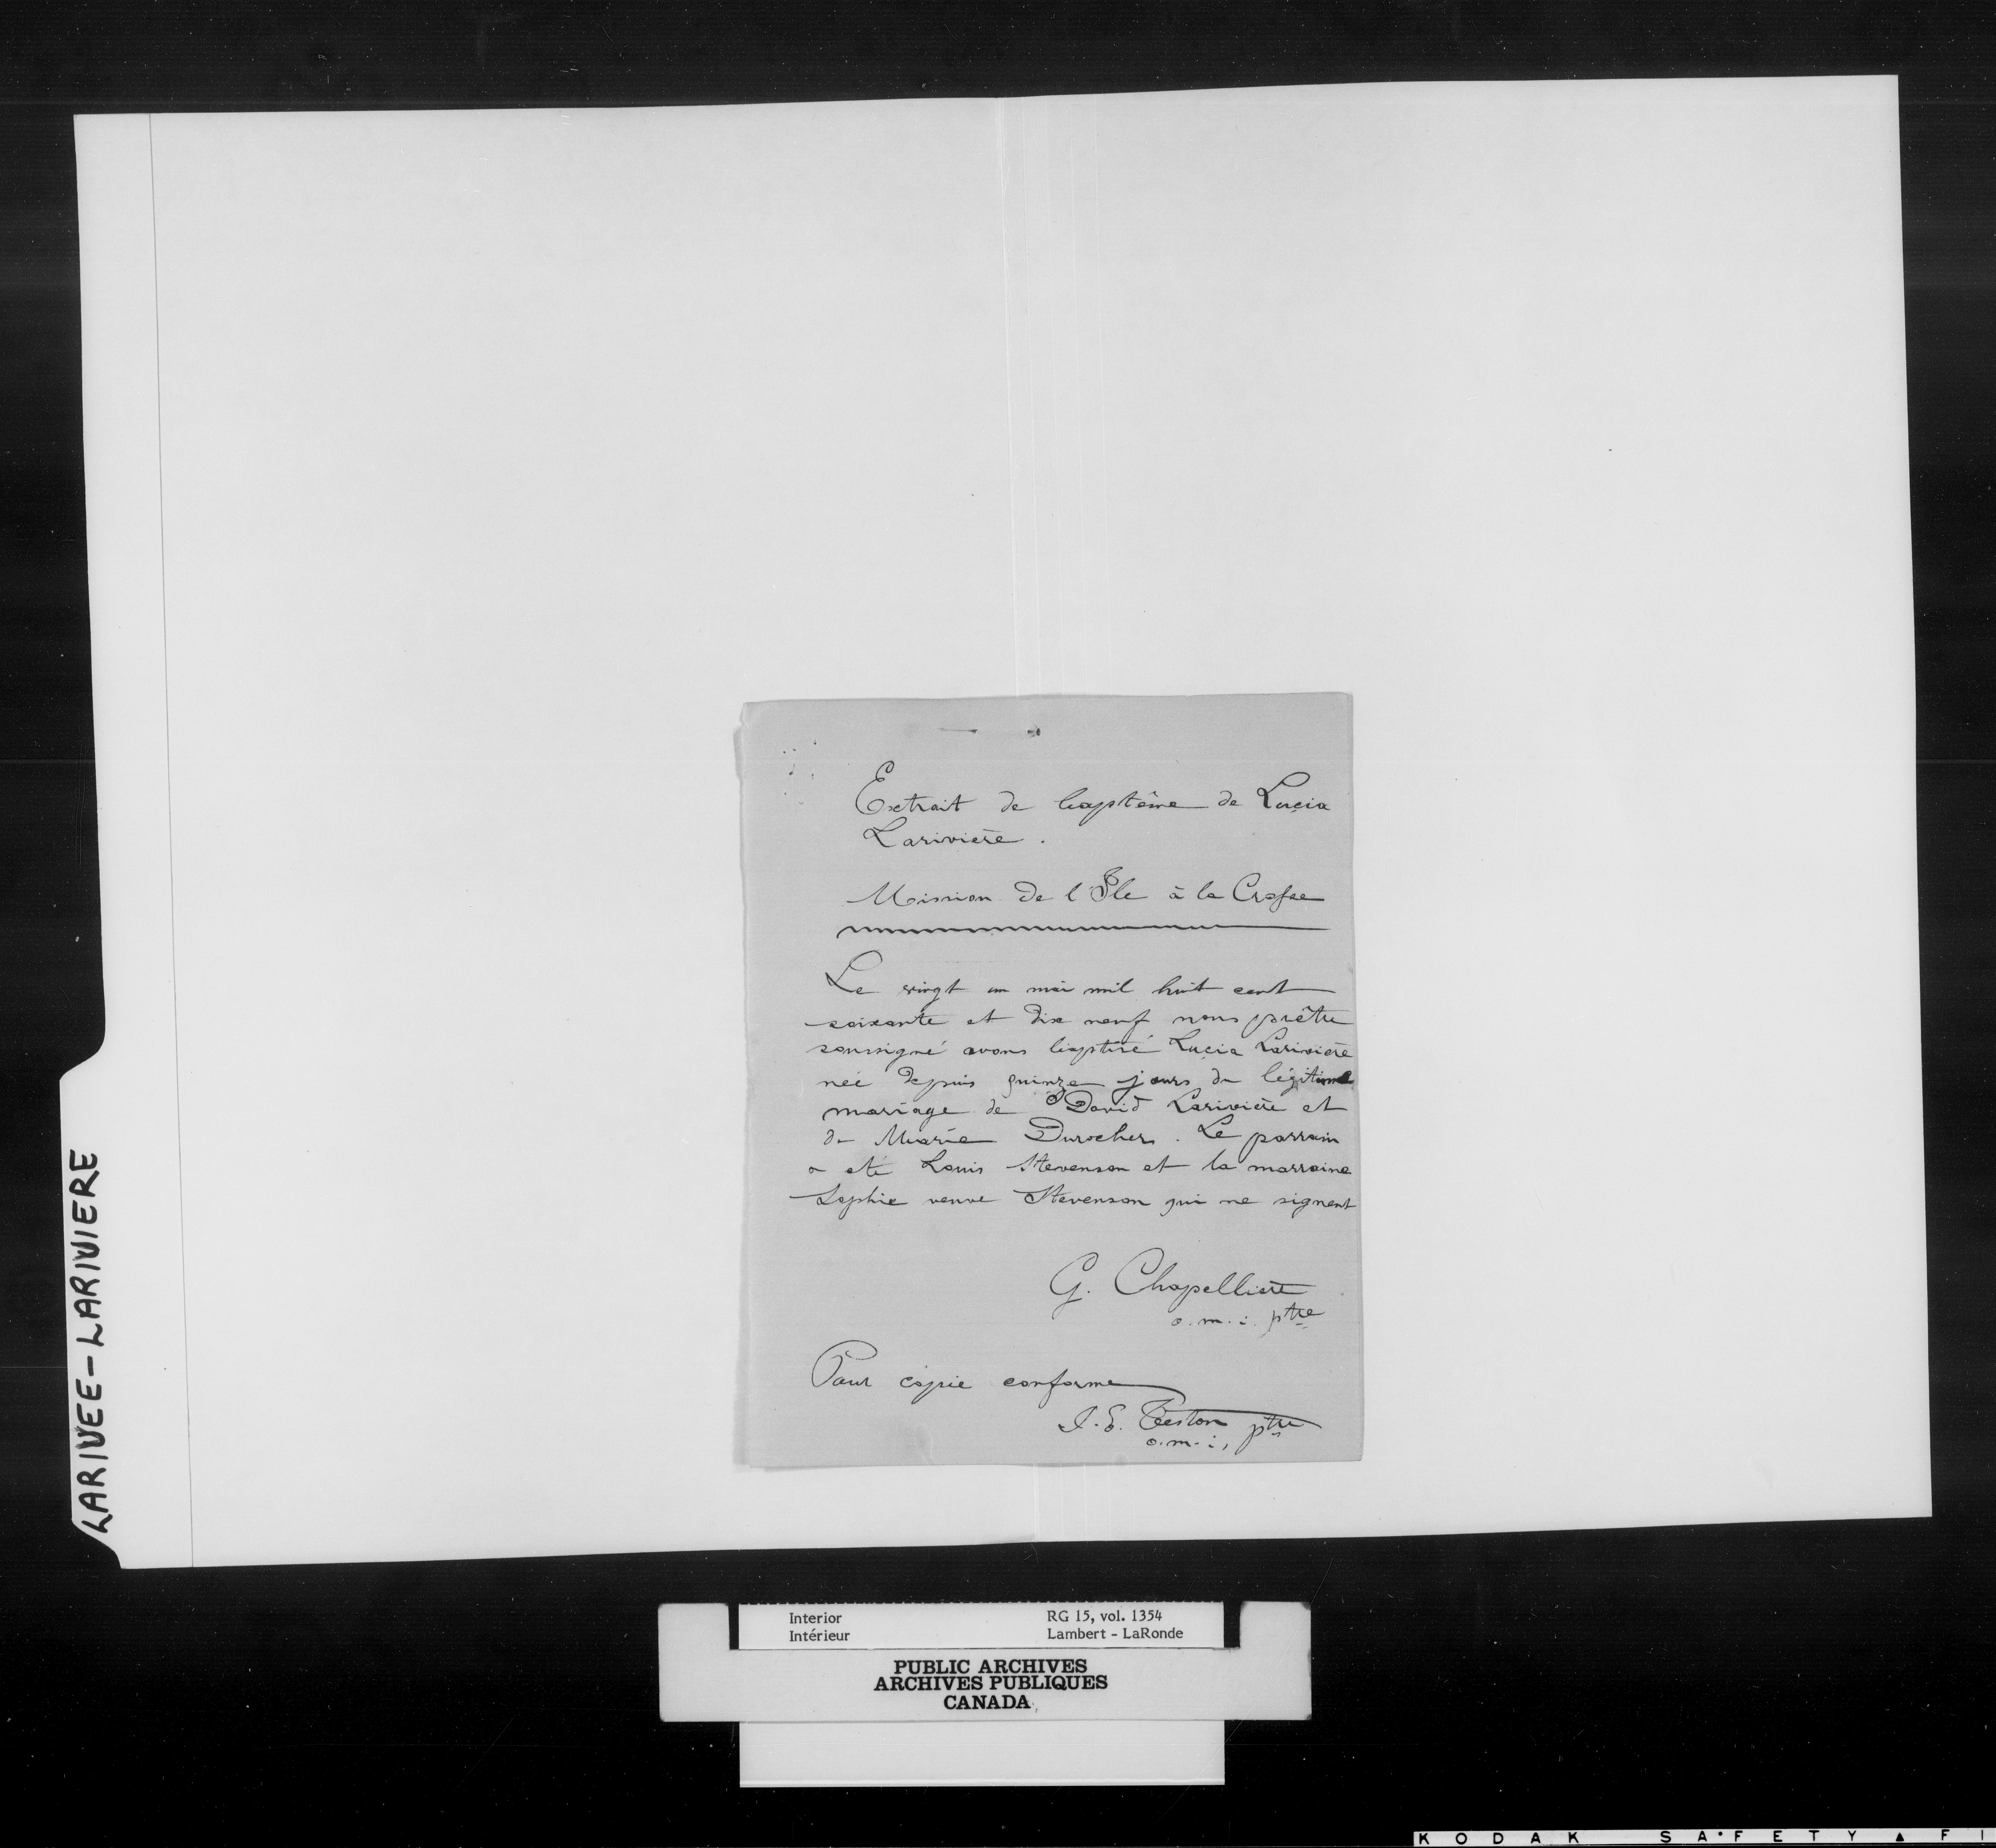 Extrait de baptême de Lucia
Larivière.
Mission de l'Ile à la Crosse
Le vingt un mai mil huit cent
soixante et dix neuf nous prêtre
soussigné avons baptisé Lucia Larivière
née depuis quinze jours du légitime
mariage de David Larivière et
de Marie Durocher. Le parrain
a été Louis Stevenson et la marraine
Sophie veuve Stevenson qui ne signent
G. Chapellière
o.m.i. ptre
Pour copie conforme
J. E. Teston ptre
o.m.i,
LARIVEE-LARIVIERE
Interior RG 15, vol. 1354
Intérieur Lambert - LaRonde
PUBLIC ARCHIVES
ARCHIVES PUBLIQUES
CANADA
KODAK SAFETY ▲ FI